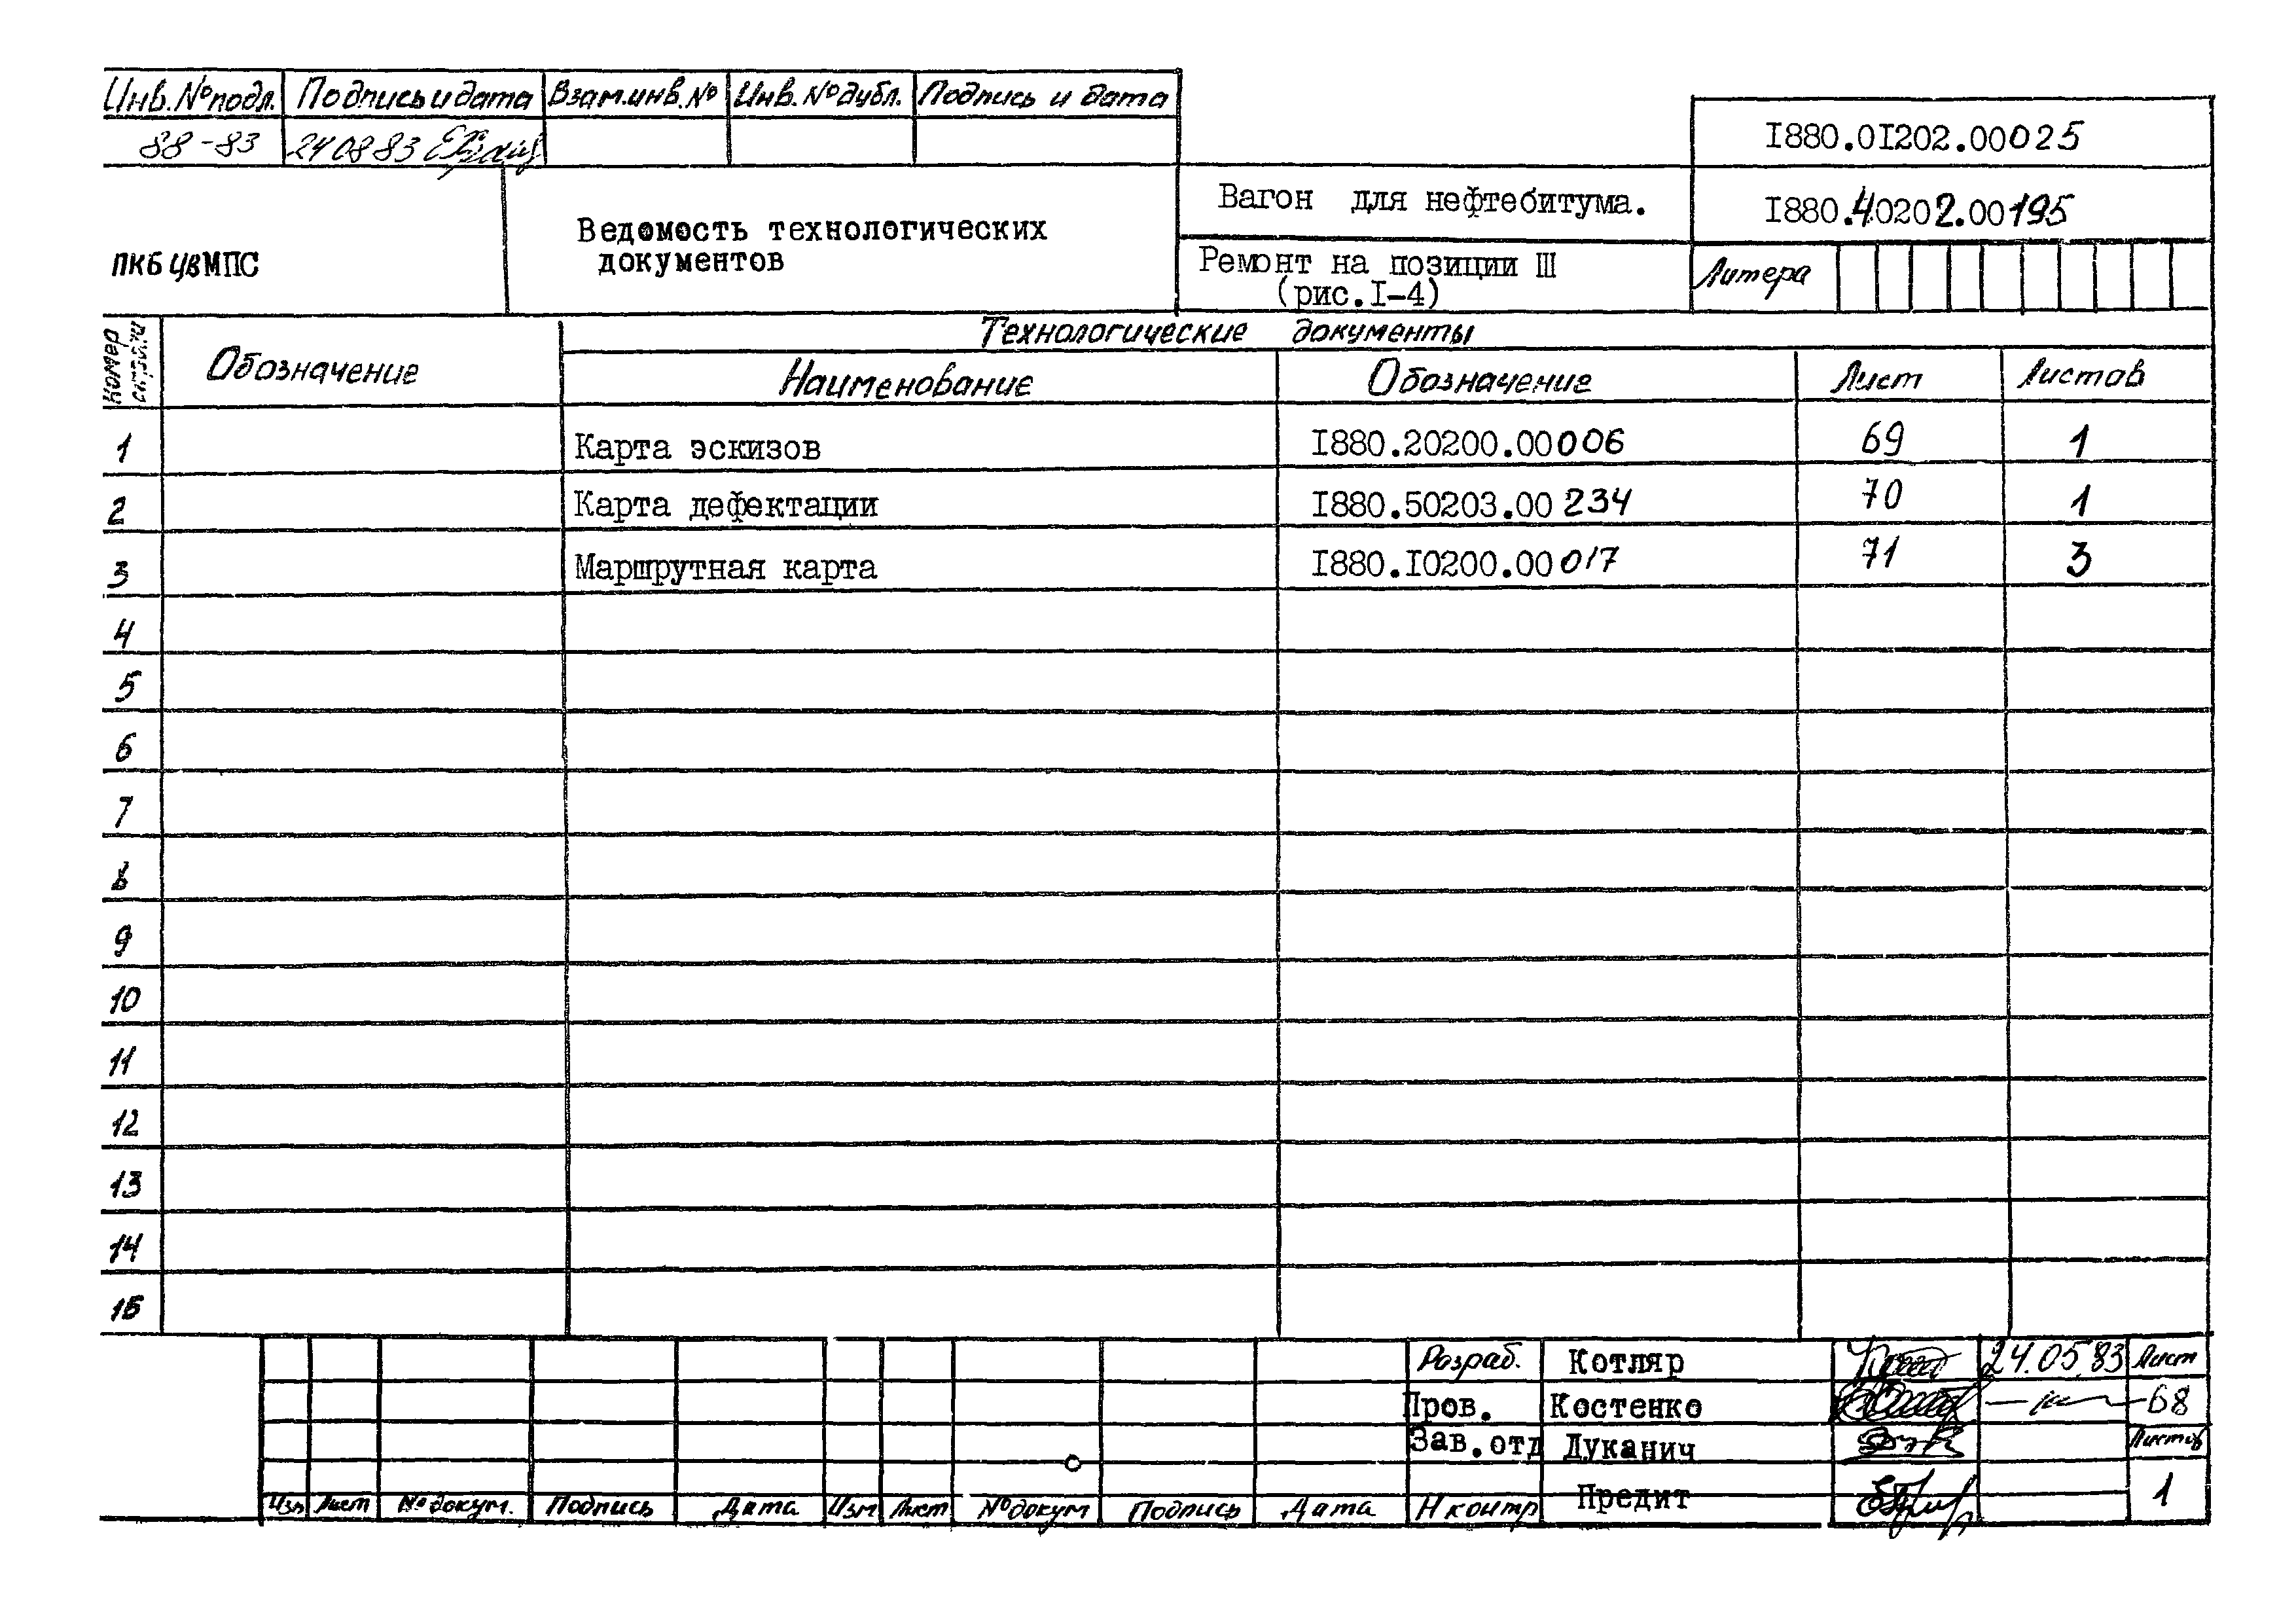 Инв.№подл. Подпись и дата Взам.инв.№ Инв.№дубл. Подпись и дата
88-83 240883
I880.0I202.00025
ПКБ ЦВ МПС
Ведомость технологических
документов
Вагон для нефтебитума.
I880.40202.00195
Ремонт на позиции Ш
(рис.I-4)
Литера
Номер строки
Обозначение
Технологические документы
Наименование Обозначение Лист Листов
1 Карта эскизов I880.20200.00006 69 1
2 Карта дефектации I880.50203.00234 70 1
3 Маршрутная карта I880.I0200.00017 71 3
4
5
6
7
8
9
10
11
12
13
14
15
Разраб. Котляр 24.05.83 Лист
Пров. Костенко 68
Зав.отд Дуканич Листов
Изм Лист № докум. Подпись Дата Изм Лист № докум Подпись Дата Н контр Предит 1